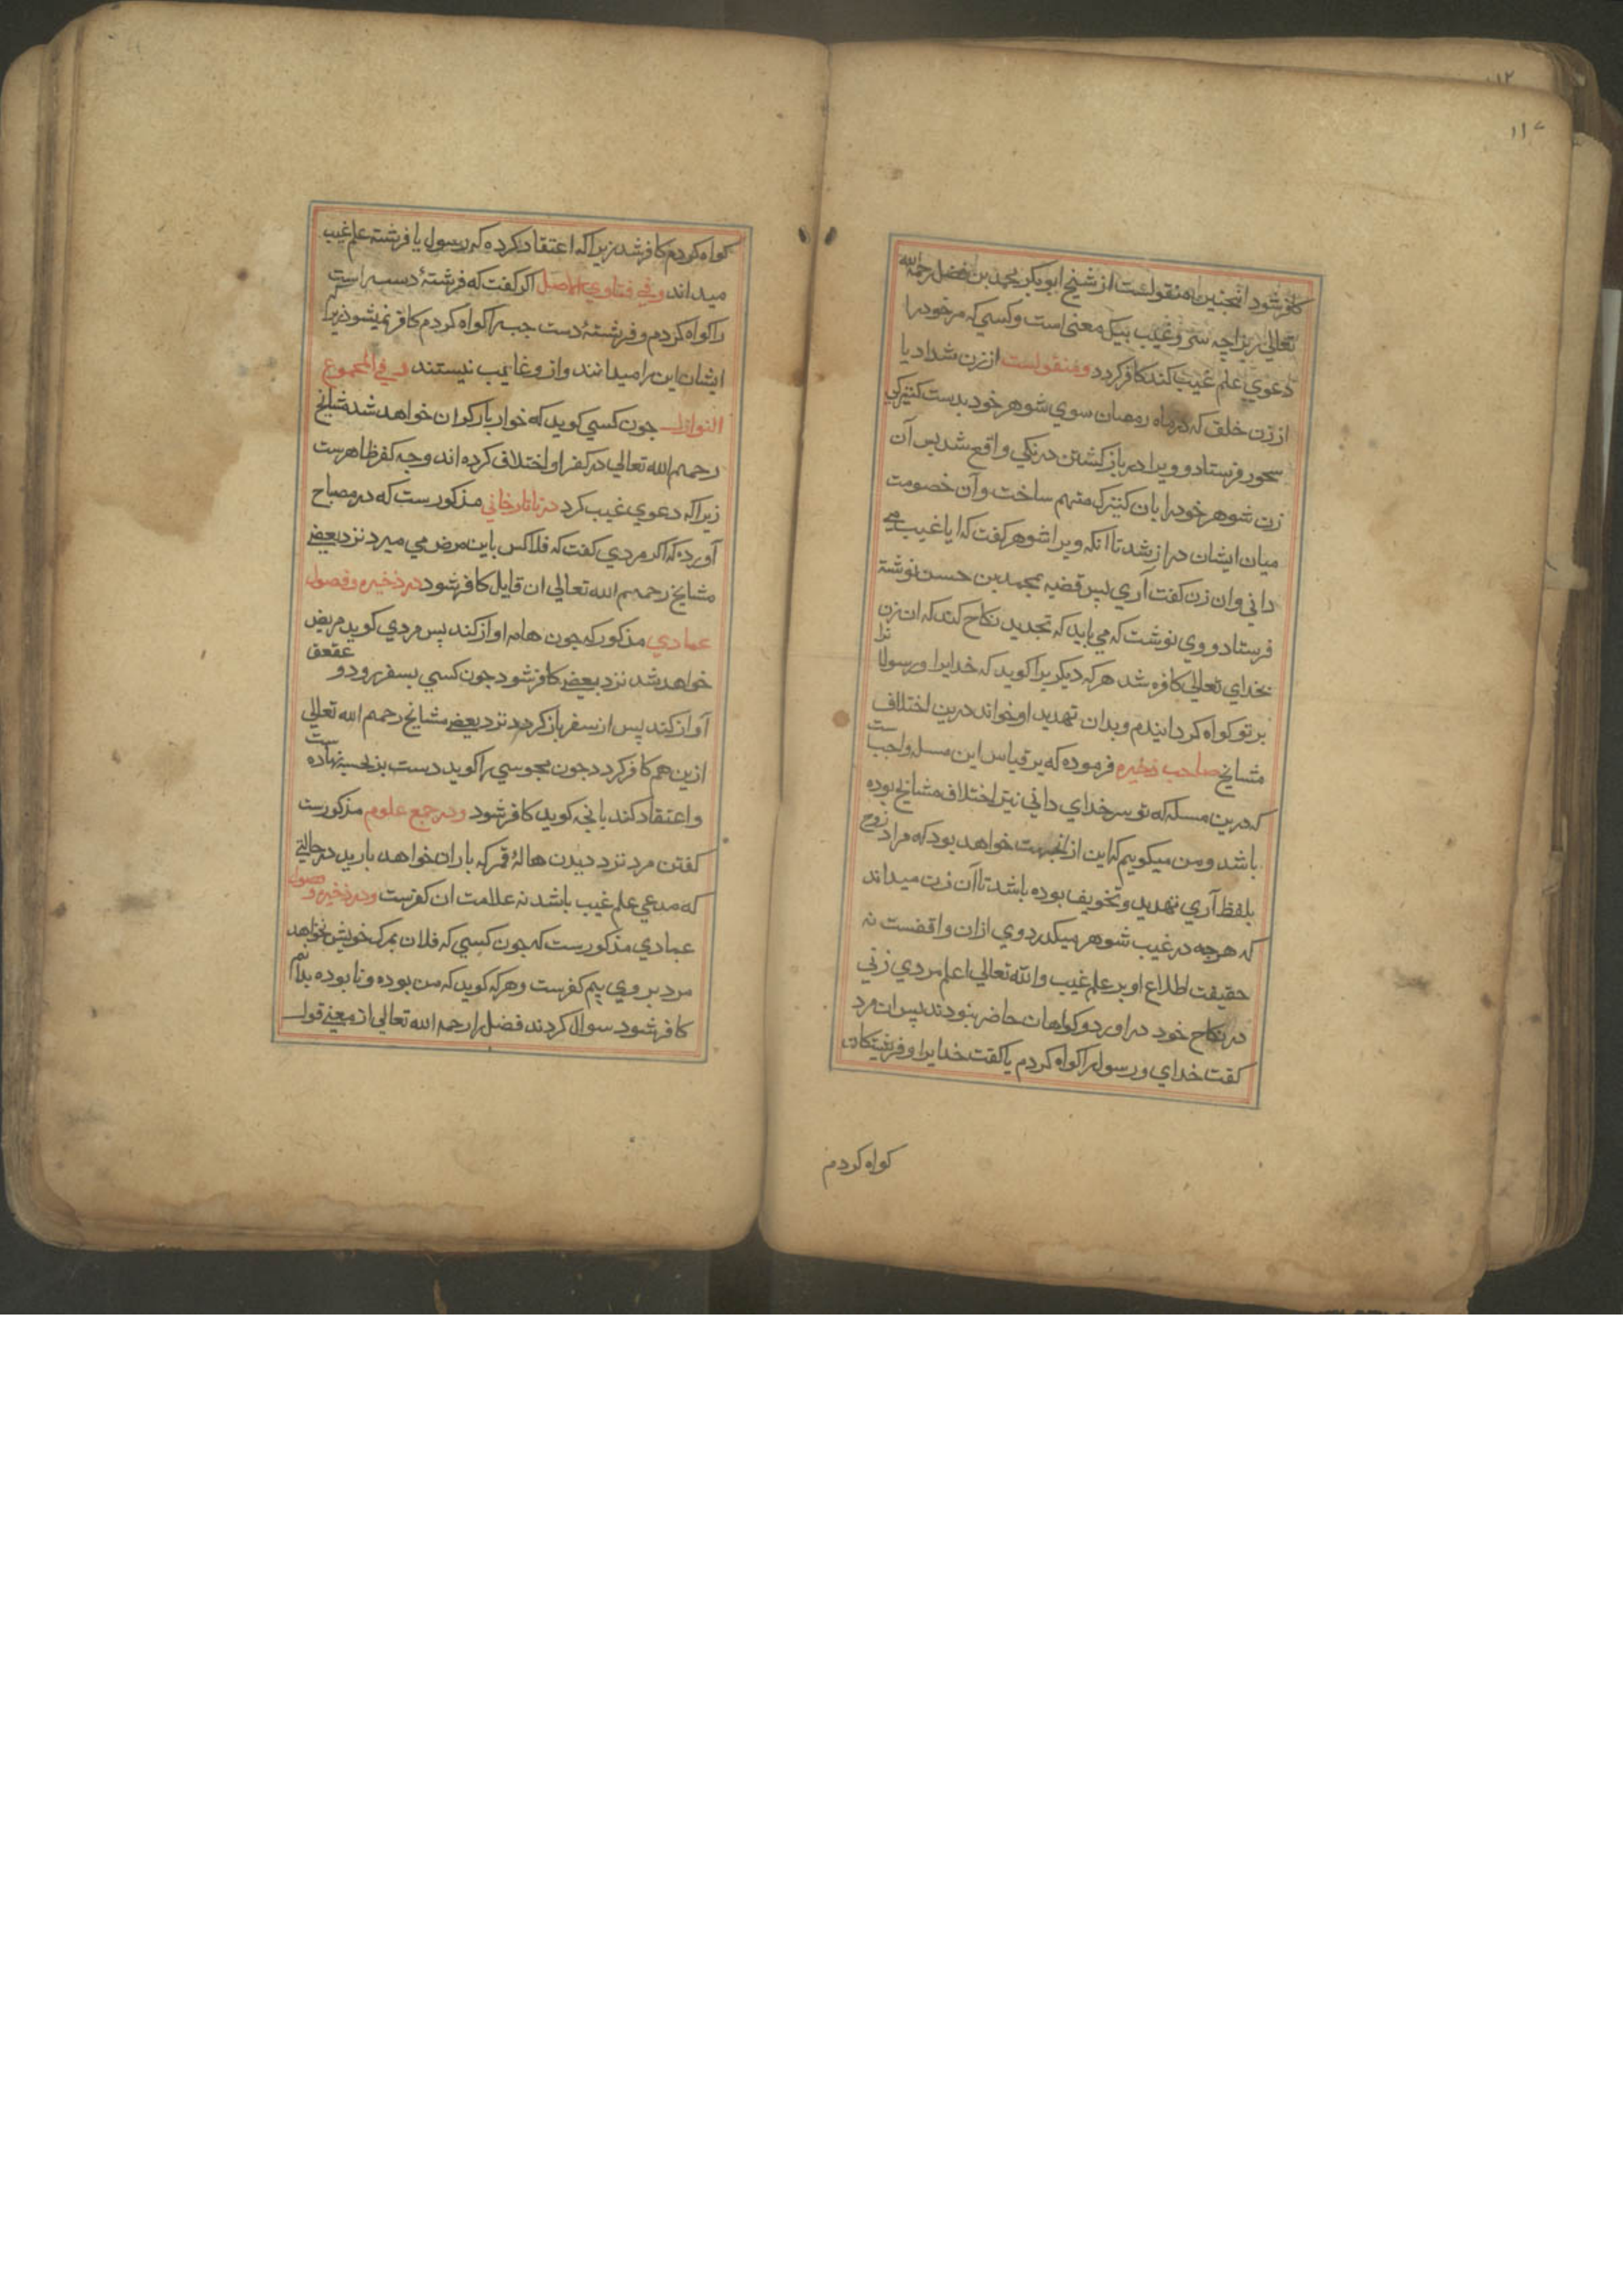 ۱۱۷
کافر شود انچنین منقولست از شیخ ابوبکر محمد بن فضل رحمه الله
تعالی زیراچه سر و غیب بیک معنی است و کسی که مر خود را
دعوی علم غیب کند کافر کردد و منقولست از زن شداد یا
از زن خلف که در ماه رمضان سوی شوهر خود بدست کنیزکی
سحور فرستاد و ویرا در باز کشتن درنکی واقع شد پس آن
زن شوهر خود را بان کنیزک متهم ساخت و آن خصومت
میان ایشان دراز شد تا انکه ویرا شوهر کفت که ایا غیب می
دانی و ان زن کفت آری پس قضیه بمحمد بن حسن نوشته
فرستاد و وی نوشت که می باید که تجدید نکاح کند که ان زن
بخدای تعالی کافره شد هر که دیکریرا کوید که خدایرا و رسول را
بر تو کواه کردانیدم و بدان تهدید او خواند درین اختلاف
مشایخ صاحب ذخیره فرموده که بر قیاس این مسله واجب ست
که درین مسله که تو سر خدای دانی نیز اختلاف مشایخ بوده
باشد و من میکویم که این ازانجهت خواهد بود که مراد زوج
بلفظ آری تهدید و تخویف بوده باشد تا آن زن میداند
که هرچه در غیب شوهر میکذرد وی ازان واقفست نه
حقیقت اطلاع او بر علم غیب والله تعالی اعلم مردی زنی
در نکاح خود دراورد و کواهان حاضر نبودند پس ان مرد
کفت خدای و رسول را کواه کردم یا کفت خدایرا و فرشتکان
کواه کردم
کواه کردم کافر شد زیرا که اعتقاد کرده که رسول یا فرشته علم غیب
میداند و فی فتاوی الاصل اکر کفت که فرشتۀ دست راست
را کواه کردم و فرشتۀ دست چپ را کواه کردم کافر نمیشود زیرا که
ایشان این را میدانند و از و غایب نیستند و فی المجموع
النوازل چون کسی کوید که خواربار کران خواهد شد مشایخ
رحمهم الله تعالی در کفر او اختلاف کرده اند وجه کفر ظاهرست
زیرا که دعوی غیب کرد در تاتارخانی مذکورست که در مصباح
آورده که اکر مردی کفت که فلاکس باین مرض می میرد نزد بعضی
مشایخ رحمهم الله تعالی ان قایل کافر شود در ذخیره و فصول
عمادی مذکور که چون هامه اواز کند پس مردی کوید مریض
خواهد شد نزد بعضی کافر شود چون کسی بسفر رود و عقعق
آواز کند پس از سفر باز کردد نزد بعضی مشایخ رحمهم الله تعالی
ازین هم کافر کردد چون مجوسی را کوید دست نهاده ست
و اعتقاد کند بانچه کوید کافر شود و در جمع علوم مذکورست
کفتن مرد نزد دیدن هالۀ قمر که باران خواهد بارید در حالتی
که مدعی علم غیب باشد نه علامت ان کفرست و در ذخیره و فصول
عمادی مذکورست که چون کسی که فلان بمرک خویش نخواهد
مرد بر وی بیم کفرست و هر که کوید که من بوده و نا بوده بدانم
کافر شود سوال کردند فضل را رحمه الله تعالی از معنی قول